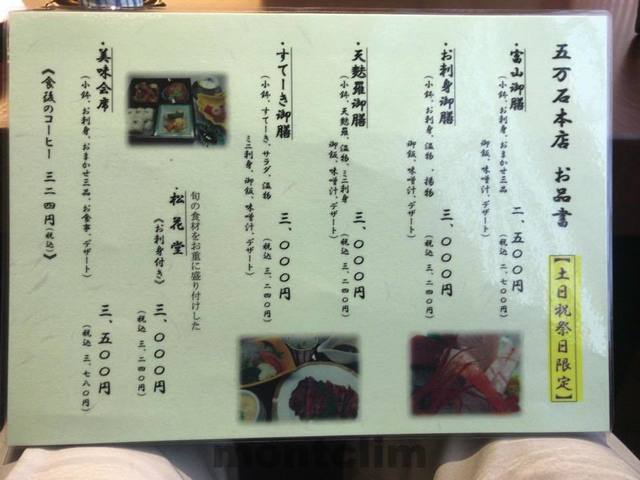 五万石本店　お品書
【土日祝祭日限定】
・富山御膳
（小鉢、お刺身、おまかせ三品
御飯、味噌汁、デザート）
二、五〇〇円
（税込 二、七〇〇円）
・お刺身御膳
（小鉢、お刺身、温物、揚物
御飯、味噌汁、デザート）
三、〇〇〇円
（税込 三、二四〇円）
・天麩羅御膳
（小鉢、天麩羅、温物、ミニ刺身
御飯、味噌汁、デザート）
三、〇〇〇円
（税込 三、二四〇円）
・すてーき御膳
（小鉢、すてーき、サラダ、温物
ミニ刺身、御飯、味噌汁、デザート）
三、〇〇〇円
（税込 三、二四〇円）
旬の食材をお重に盛り付けした
・松花堂
《お刺身付き》
三、〇〇〇円
（税込 三、二四〇円）
・美味会席
（小鉢、お刺身、おまかせ三品、お食事、デザート）
三、五〇〇円
（税込 三、七八〇円）
《食後のコーヒー　三二四円（税込）》
montclim